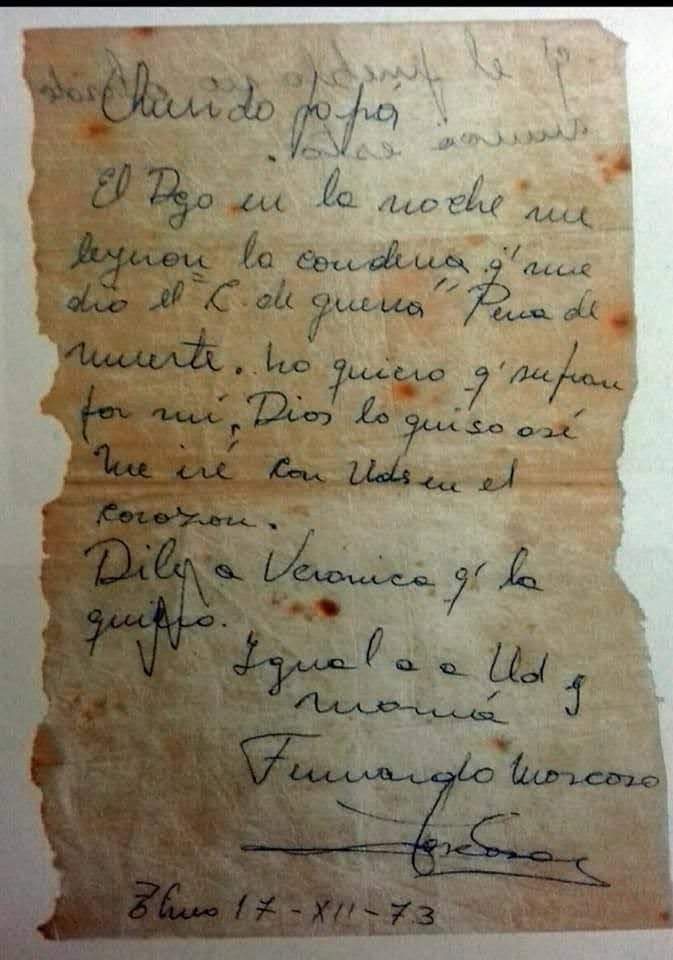 Querido papá
El Dgo en la noche me
leyeron la condena q' me
dio el "C. de guerra" Pena de
muerte. no quiero q' sufran
por mí, Dios lo quiso así
me iré con Uds en el
corazon.
Dile a Verónica q' la
quiero.
Igual a a Ud y
mamá
Fernando Moscoso
17-XII-73